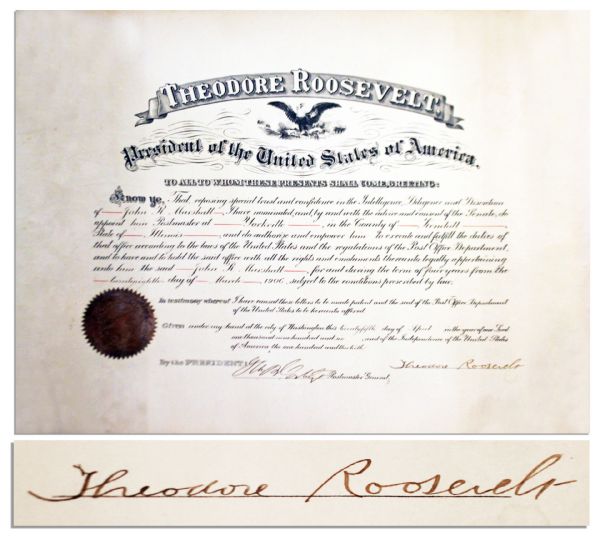 THEODORE ROOSEVELT,
President of the United States of America.
TO ALL TO WHOM THESE PRESENTS SHALL COME, GREETING:
Know ye, That, reposing special trust and confidence in the Intelligence, Diligence and Discretion
of John R. Marshall, I have nominated, and by and with the advice and consent of the Senate, do
appoint him Postmaster at Yorkville, in the County of Kendall,
State of Illinois and do authorize and empower him to execute and fulfill the duties of
that office according to the laws of the United States and the regulations of the Post Office Department,
and to have and to hold the said office with all the rights and emoluments thereunto legally appertaining
unto him the said John R. Marshall, for and during the term of four years from the
day of March, 1906, subject to the conditions prescribed by law.
In testimony whereof I have caused these letters to be made patent and the seal of the Post Office Department
of the United States to be hereunto affixed.
Given under my hand at the city of Washington this twenty fifth day of April in the year of our Lord
one thousand nine hundred and six, and of the Independence of the United States
of America the one hundred and thirtieth.
By the PRESIDENT:
Postmaster General.
Theodore Roosevelt
Theodore Roosevelt